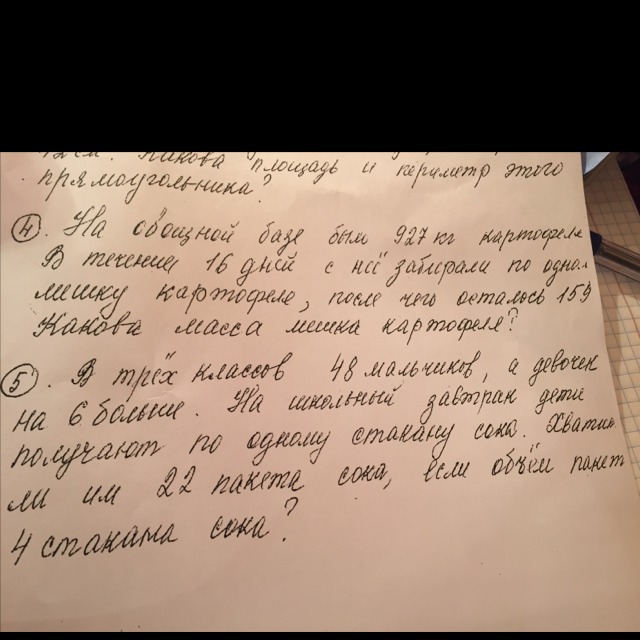 Какова площадь и периметр этого
прямоугольника?
4. На овощной базе был 927 кг картофеля
В течение 16 дней с неё забирали по одном
мешку картофеле, после чего осталось 159
Какова масса мешка картофеля?
5. В трёх классов 48 мальчиков, а девочек
на 6 больше. На школьный завтрак дети
получают по одному стакану сока. Хватит
ли им 22 пакета сока, если объём пакет
4 стакана сока?